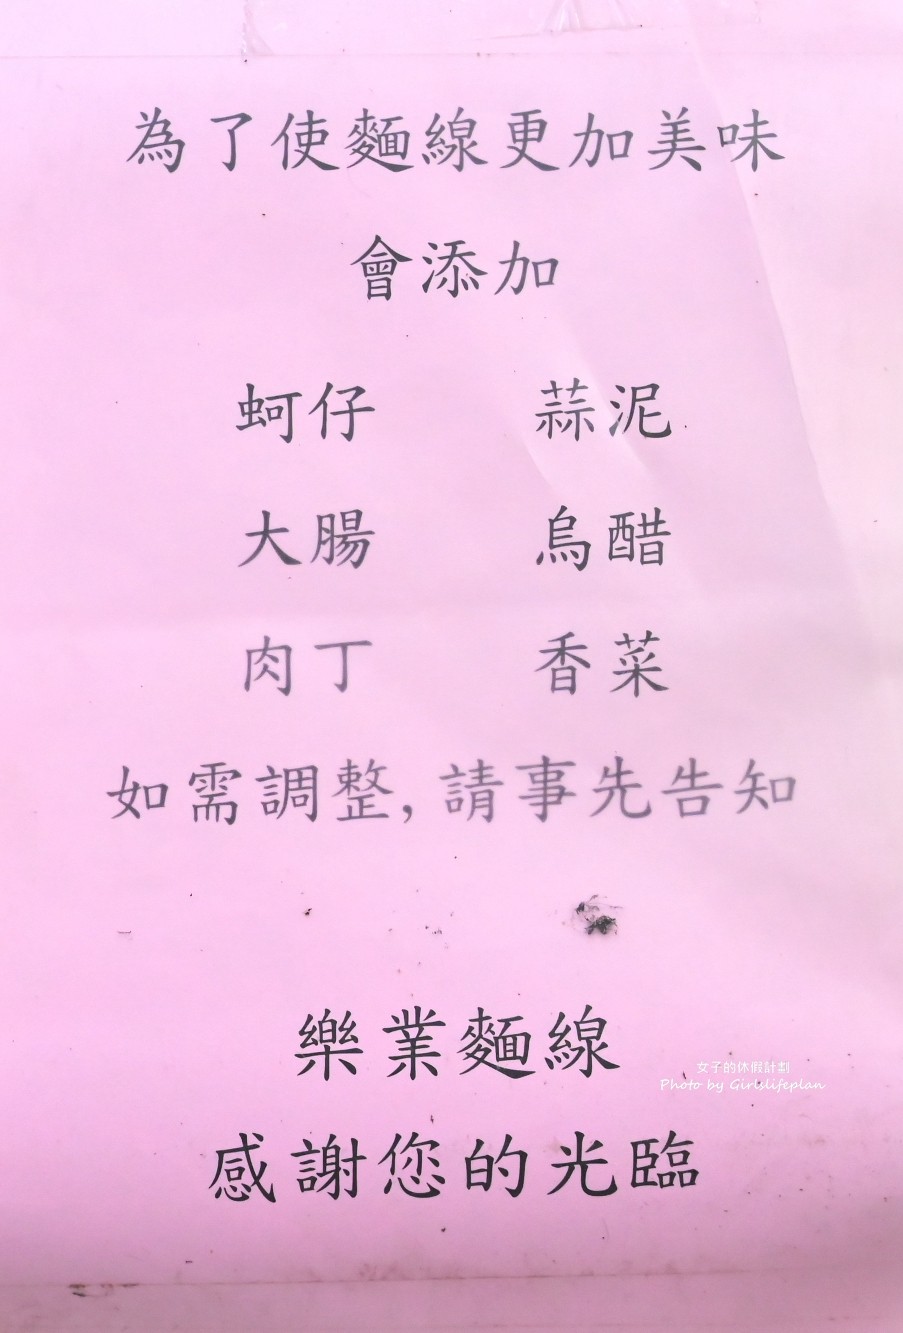 為了使麵線更加美味
會添加
蚵仔 蒜泥
大腸 烏醋
肉丁 香菜
如需調整,請事先告知
樂業麵線
女子的休假計劃
Photo by Girlslifeplan
感謝您的光臨